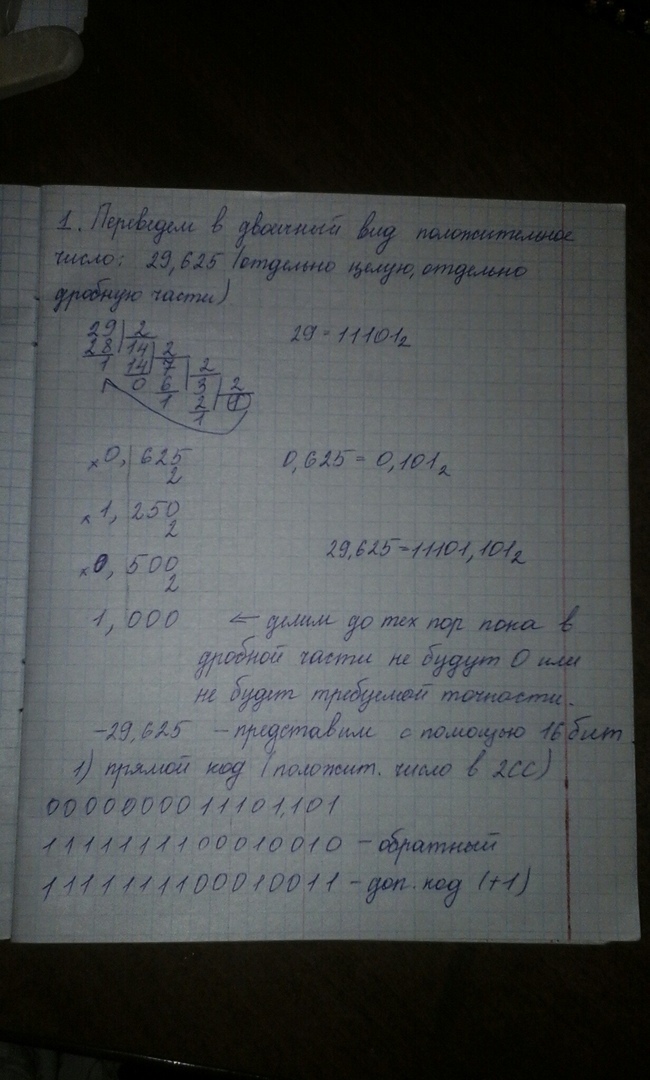 1. Переведем в двоичный вид положительное
число: 29,625 (отдельно целую, отдельно
дробную части)
29 | 2
28 | 14 | 2
1 14 7 | 2
0 6 3 | 2
1 2 1
1
29 = 11101₂
× 0,625
2
0,625 = 0,101₂
× 1,250
2
× 0,500
2
29,625 = 11101,101₂
1,000 ← делим до тех пор пока в
дробной части не будут 0 или
не будет требуемой точности.
-29,625 - представим с помощью 16 бит.
1) прямой код (положит. число в 2СС)
0000000011101,101
1111111100010010 - обратный
1111111100010011 - доп. код (+1)